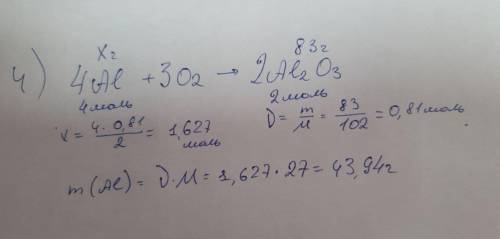 4) xг 83г
4Al + 3O2 → 2Al2O3
4 моль 2 моль
x = 4 · 0,81 / 2 = 1,627 моль ν = m/M = 83/102 = 0,81 моль
m (Al) = ν · M = 1,627 · 27 = 43,94 г